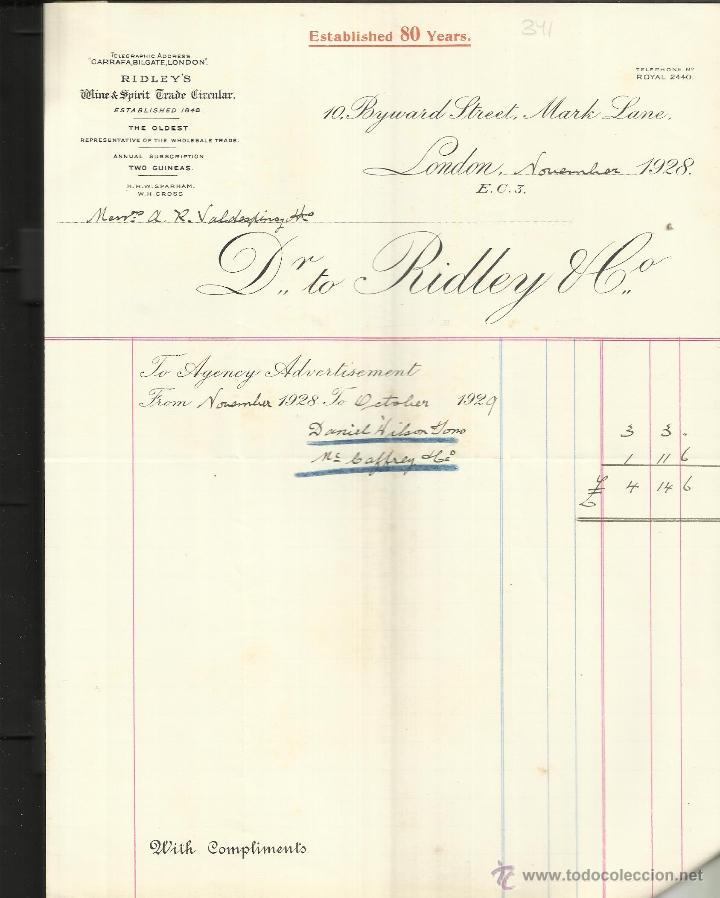 Established 80 Years.
341
TELEGRAPHIC ADDRESS
"CARRAFA, BILGATE, LONDON".
RIDLEY'S
Wine & Spirit Trade Circular.
ESTABLISHED 1848
THE OLDEST
REPRESENTATIVE OF THE WHOLESALE TRADE.
ANNUAL SUBSCRIPTION
TWO GUINEAS.
H.H.W. SPARHAM.
W.H. CROSS
TELEPHONE No
ROYAL 2440.
10, Byward Street, Mark Lane,
London, November 1928.
E.C.3.
Messrs A. R. Valdespino & Co
Dr. to Ridley & Co.
To Agency Advertisement
From November 1928 To October 1929
Daniel Wilson & Sons 3 3 .
Mc Caffrey & Co 1 11 6
£ 4 14 6
With Compliments
www.todocoleccion.net